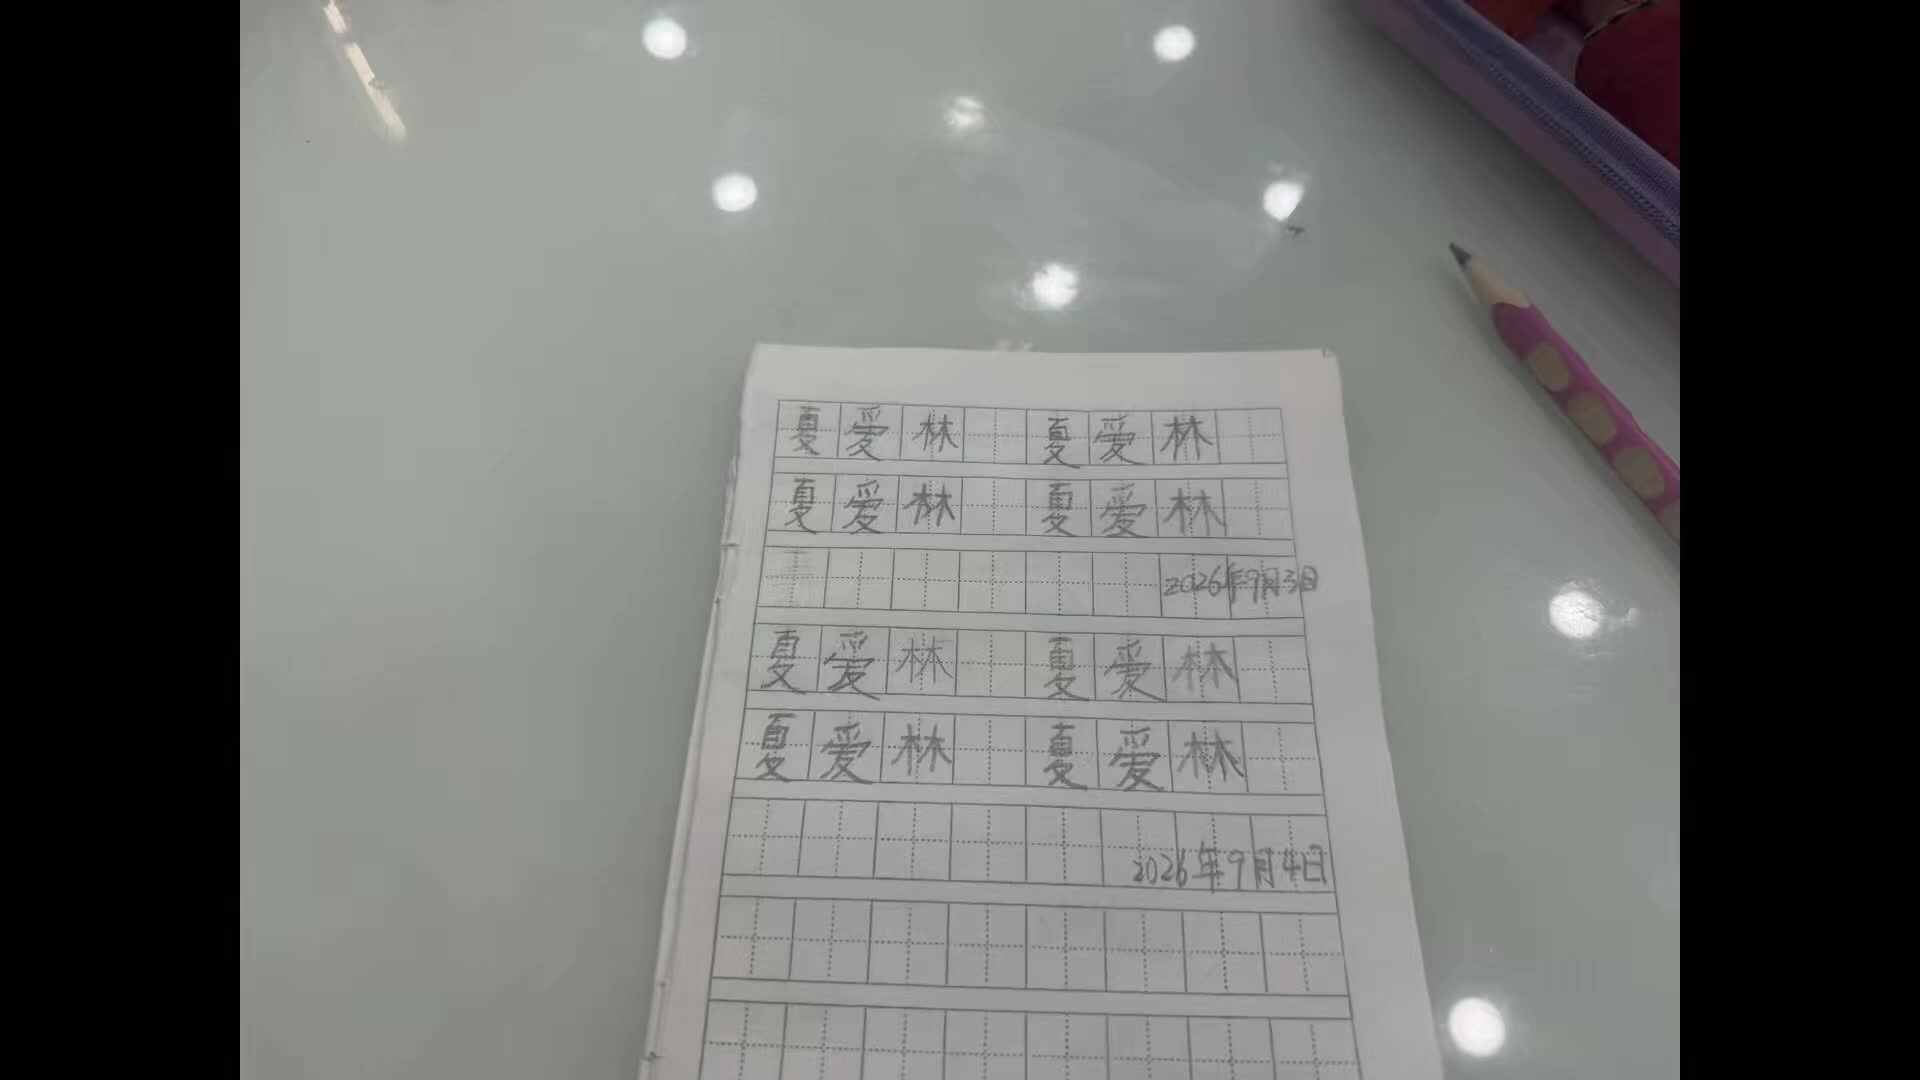 夏爱林 夏爱林
夏爱林 夏爱林
2026年9月3日
夏爱林 夏爱林
夏爱林 夏爱林
2026年9月4日